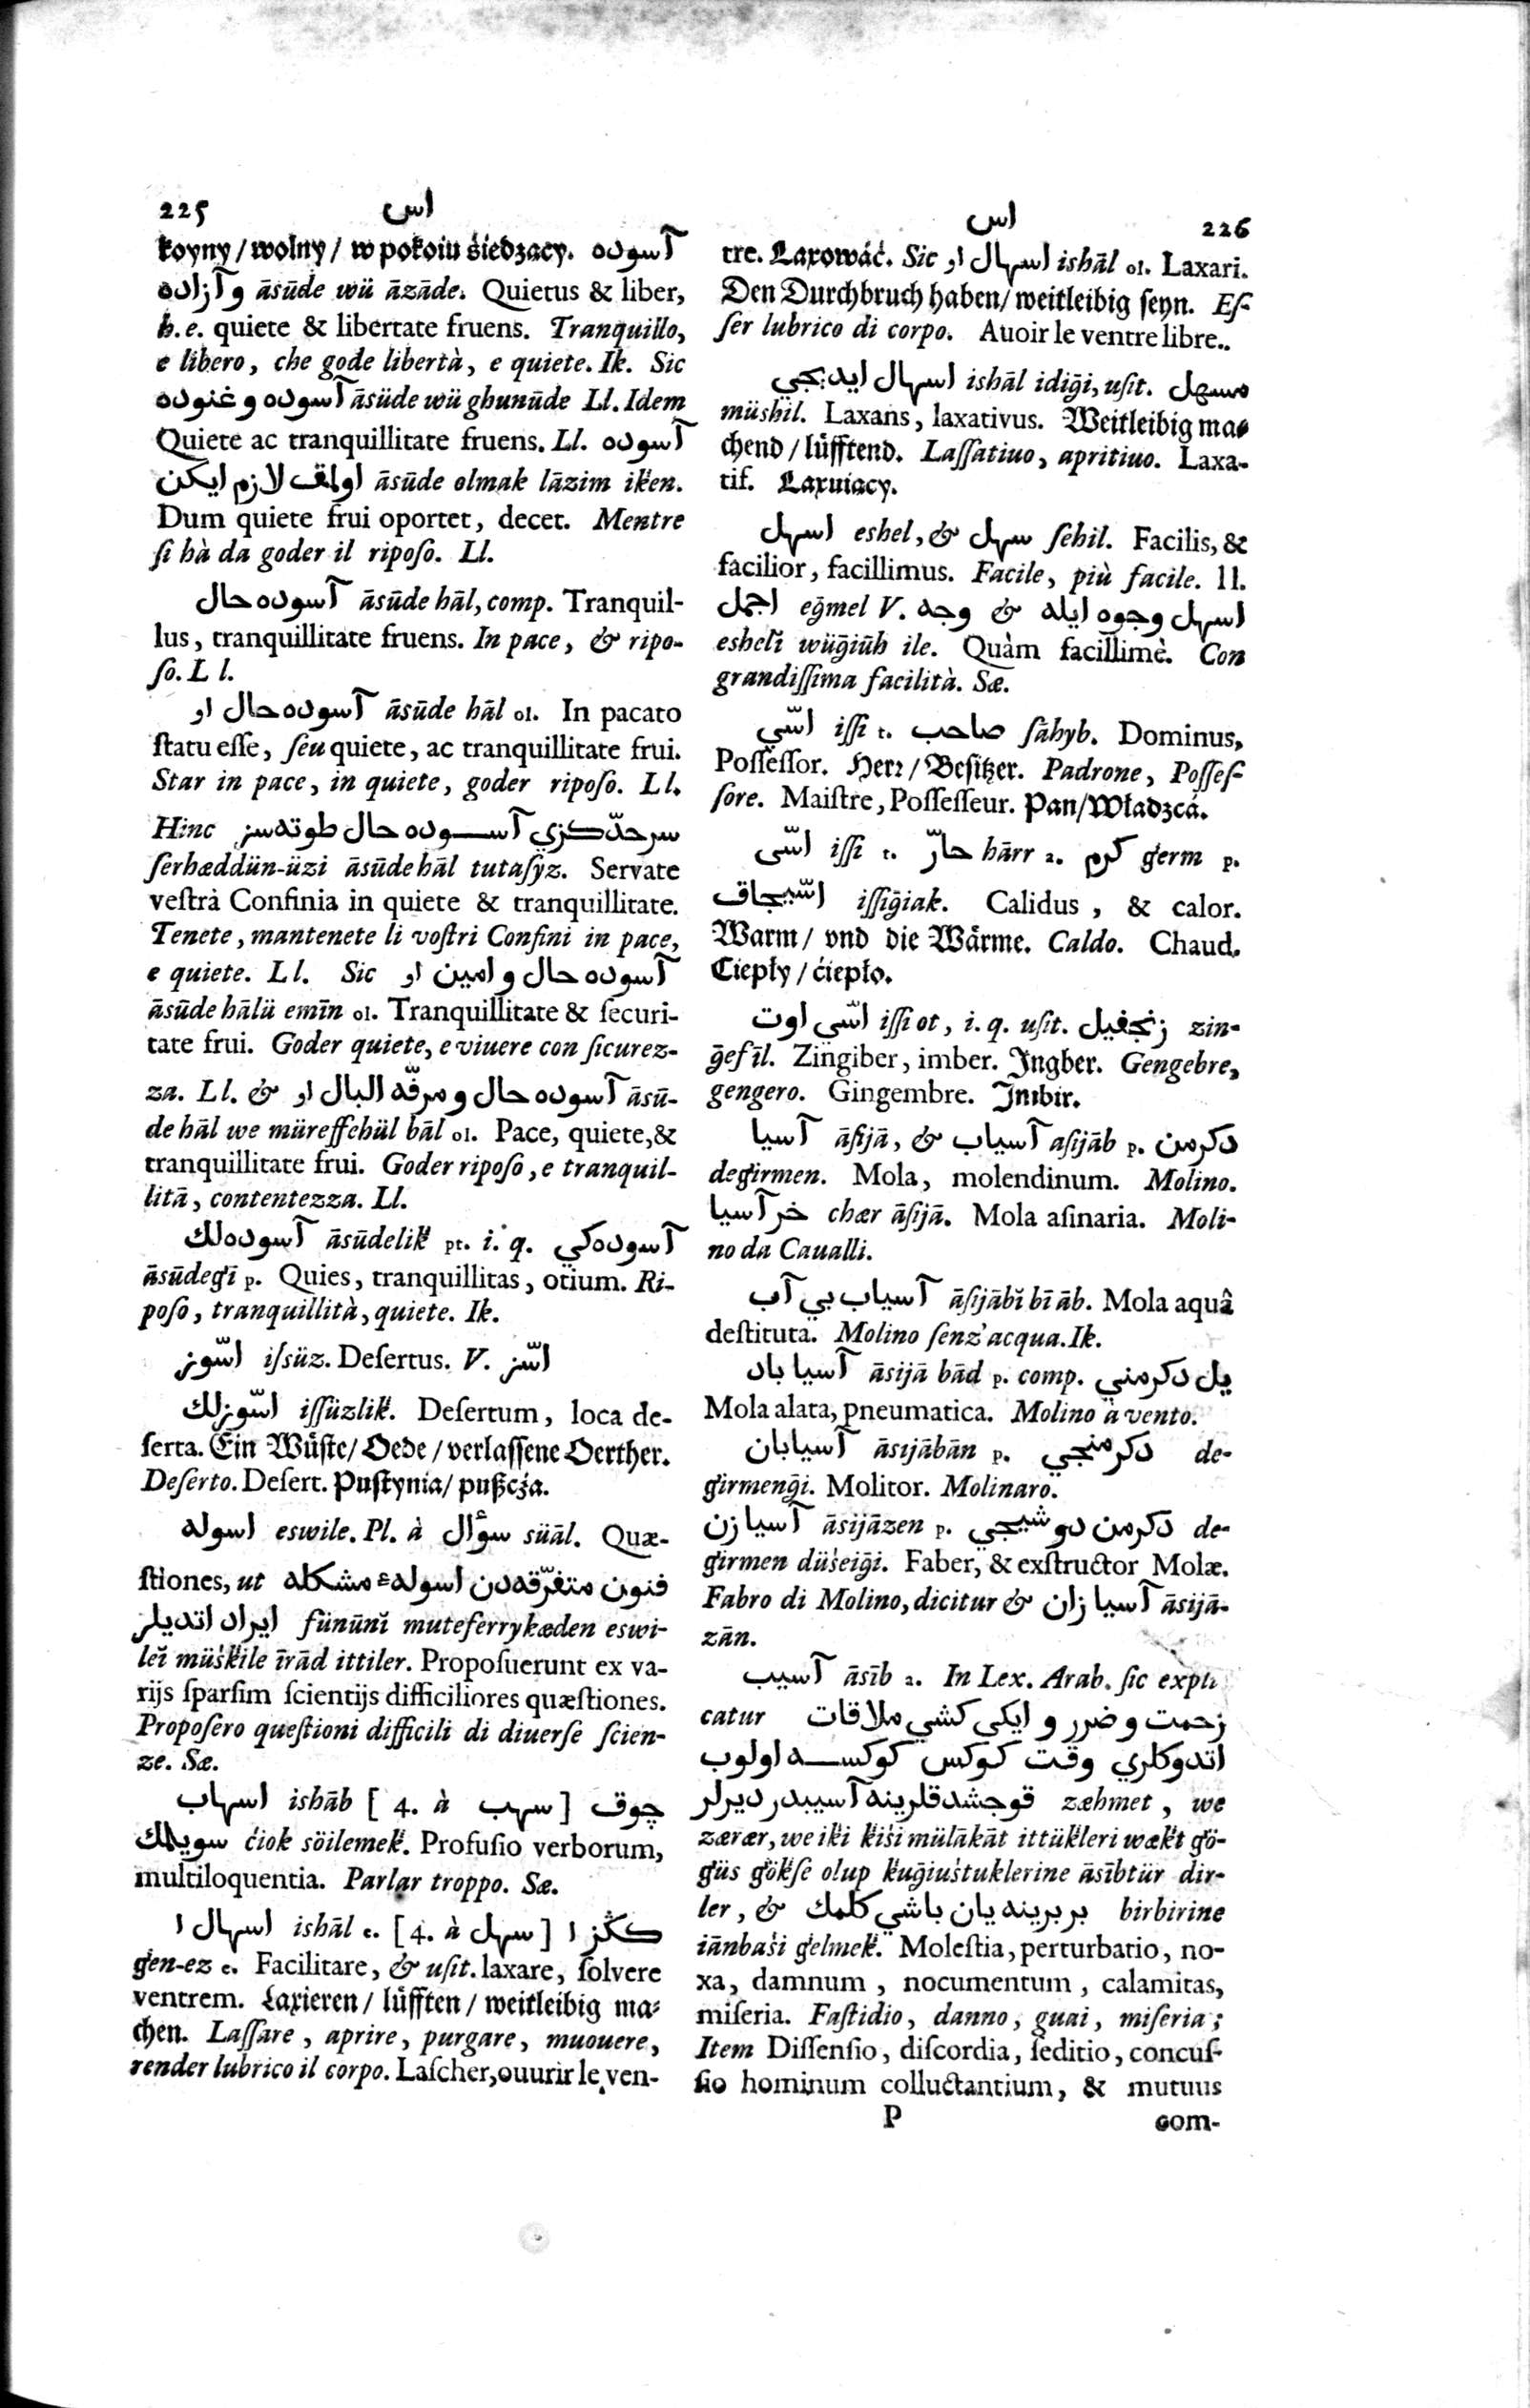 225 اس
koyny/ wolny/ w pokoiu śiedzacy. آسوده
وآزاده āsūde wü āzāde. Quietus & liber,
h. e. quiete & libertate fruens. Tranquillo,
e libero, che gode libertà, e quiete. Ik. Sic
آسوده و غنوده āsüde wü ghunūde Ll. Idem
Quiete ac tranquillitate fruens. Ll. آسوده
اولمق لازم ايكن āsūde olmak lāzim iken.
Dum quiete frui oportet, decet. Mentre
ſi hà da goder il ripoſo. Ll.
آسوده حال āsūde hāl, comp. Tranquil-
lus, tranquillitate fruens. In pace, & ripo-
ſo. L l.
آسوده حال او āsūde hāl ol. In pacato
ſtatu eſſe, ſeu quiete, ac tranquillitate frui.
Star in pace, in quiete, goder ripoſo. Ll.
Hinc سرحدّكزي آسوده حال طوته سز
ſerhæddün-üzi āsūde hāl tutaſyz. Servate
veſtra Confinia in quiete & tranquillitate.
Tenete, mantenete li voſtri Confini in pace,
e quiete. Ll. Sic آسوده حال و امين او
āsūde hālü emīn ol. Tranquillitate & ſecuri-
tate frui. Goder quiete, e viuere con ſicurez-
za. Ll. & آسوده حال و مرفّه البال او āsū-
de hāl we müreffehül bāl ol. Pace, quiete, &
tranquillitate frui. Goder ripoſo, e tranquil-
litā, contentezza. Ll.
آسوده لك āsūdelik pt. i. q. آسوده كي
āsūdegī p. Quies, tranquillitas, otium. Ri-
poſo, tranquillità, quiete. Ik.
اسّوز iſsüz. Deſertus. V. اسّز
اسّوزلك iſſüzlik. Deſertum, loca de-
ſerta. Ein Wüſte/ Oede/ verlaſſene Oerther.
Deſerto. Deſert. Puſtynia/ pußcża.
اسوله eswile. Pl. à سؤال süāl. Quæ-
ſtiones, ut فنون متفرّقه دن اسولهء مشكله
ايراد اتديلر fünūnĭ muteferrykæden eswi-
leĭ müṡkile īrād ittiler. Propoſuerunt ex va-
rijs ſparſim ſcientijs difficiliores quæſtiones.
Propoſero queſtioni difficili di diuerſe ſcien-
ze. Sæ.
اسهاب ishāb [ 4. à سهب ] چوق
سويلمك ċiok söilemek. Profuſio verborum,
multiloquentia. Parlar troppo. Sæ.
اسهال ا ishāl e. [ 4. à سهل ] ككز ا
gen-ez e. Facilitare, & uſit. laxare, ſolvere
ventrem. Laxieren/ lüfften/ weitleibig ma-
chen. Laſſare, aprire, purgare, muouere,
render lubrico il corpo. Laſcher, ouurir le ven-
اس 226
tre. Laxowáć. Sic اسهال او ishāl ol. Laxari.
Den Durchbruch haben/ weitleibig ſeyn. Eſ-
ſer lubrico di corpo. Auoir le ventre libre..
اسهال ايديجي ishāl idiḡi, uſit. مسهل
müshil. Laxans, laxativus. Weitleibig ma-
chend/ lüfftend. Laſſatiuo, apritiuo. Laxa-
tif. Laxuiacy.
اسهل eshel, & سهل ſehil. Facilis, &
facilior, facillimus. Facile, più facile. ll.
اجمل eḡmel V. وجه & اسهل وجوه ايله
eshelĭ wüḡiūh ile. Quàm facillimè. Con
grandiſſima facilità. Sæ.
اسّي iſſi t. صاحب ſāhyb. Dominus,
Poſſeſſor. Herr/ Beſitzer. Padrone, Poſſeſ-
ſore. Maiſtre, Poſſeſſeur. Pan/ Władzcá.
اسّى iſſi t. حارّ hārr a. كرم germ p.
اسّيجاق iſſiḡiak. Calidus, & calor.
Warm/ vnd die Wärme. Caldo. Chaud.
Ciepły/ ćiepło.
اسّى اوت iſſi ot, i. q. uſit. زنجفيل zin-
ḡefīl. Zingiber, imber. Ingber. Gengebre,
gengero. Gingembre. Imbir.
آسيا āſijā, & آسياب aſijāb p. دكرمن
degirmen. Mola, molendinum. Molino.
خر آسيا chær āſijā. Mola aſinaria. Moli-
no da Caualli.
آسياب بي آب āſijābĭ bī āb. Mola aquâ
deſtituta. Molino ſenz'acqua. Ik.
آسيا باد āsijā bād p. comp. يل دكرمني
Mola alata, pneumatica. Molino à vento.
آسيابان āsijābān p. دكرمنجي de-
girmenḡi. Molitor. Molinaro.
آسيا زن āsijāzen p. دكرمن دوشيجي de-
girmen düṡeiḡi. Faber, & exſtructor Molæ.
Fabro di Molino, dicitur & آسيا زان āsijā-
zān.
آسيب āsīb a. In Lex. Arab. ſic expli
catur زحمت و ضرر و ايكي كشي ملاقات
اتدوكلري وقت كوكس كوكسه اولوب
قوجشدقلرينه آسيبدر ديرلر zæhmet, we
zærær, we iki kiṡi mülākāt ittükleri wækt gö-
güs gökſe olup kuḡiuṡtuklerine āsībtür dir-
ler, & بربرينه يان باشي كلمك birbirine
iānbaṡi gelmek. Moleſtia, perturbatio, no-
xa, damnum, nocumentum, calamitas,
miſeria. Faſtidio, danno, guai, miſeria;
Item Diſſenſio, diſcordia, ſeditio, concuſ-
ſio hominum colluctantium, & mutuus
P com-